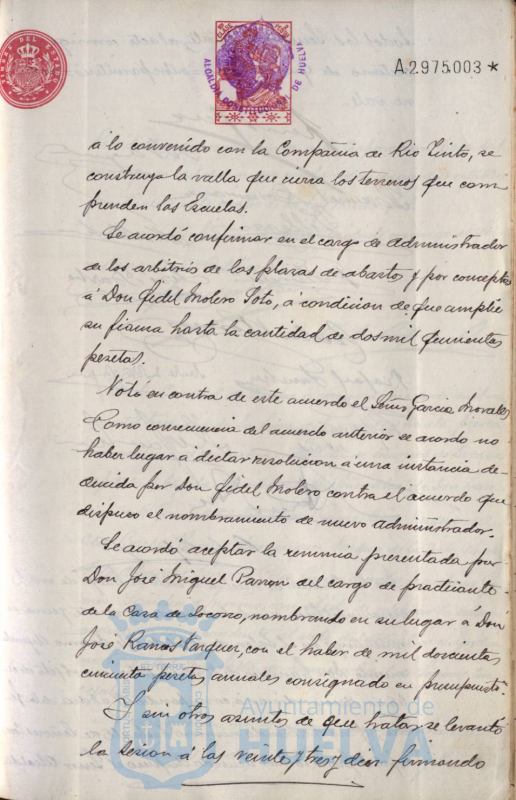 A2975003*
ALCALDIA CONSTITUCIONAL DE HUELVA
á lo convenido con la Compañia de Rio Tinto, se
construya la valla que cierra los terrenos que com
prenden las Escuelas.
Se acordó confirmar en el cargo de Administrador
de los arbitrios de las plazas de abastos y por concepto
á Don Fidel Molero Soto, á condicion de que amplie
su fianza hasta la cantidad de dos mil quinientas
pesetas.
Votó en contra de este acuerdo el Señor Garcia Morales
Como consecuencia del acuerdo anterior se acordo no
haber lugar á dictar resolucion á una instancia de-
ducida por Don Fidel Molero contra el acuerdo que
dispuso el nombramiento de nuevo Administrador.
Se acordó aceptar la renuncia presentada por
Don José Miguel Parron del cargo de practicante
de la Casa de Socorro, nombrando en su lugar á Don
José Ramos Varquez, con el haber de mil doscientas
cincuenta pesetas anuales consignado en presupuestº
Y sin otros asuntos de que tratar se levantó
la sesion á las veinte y tres y diez firmando
Ayuntamiento de
HUELVA